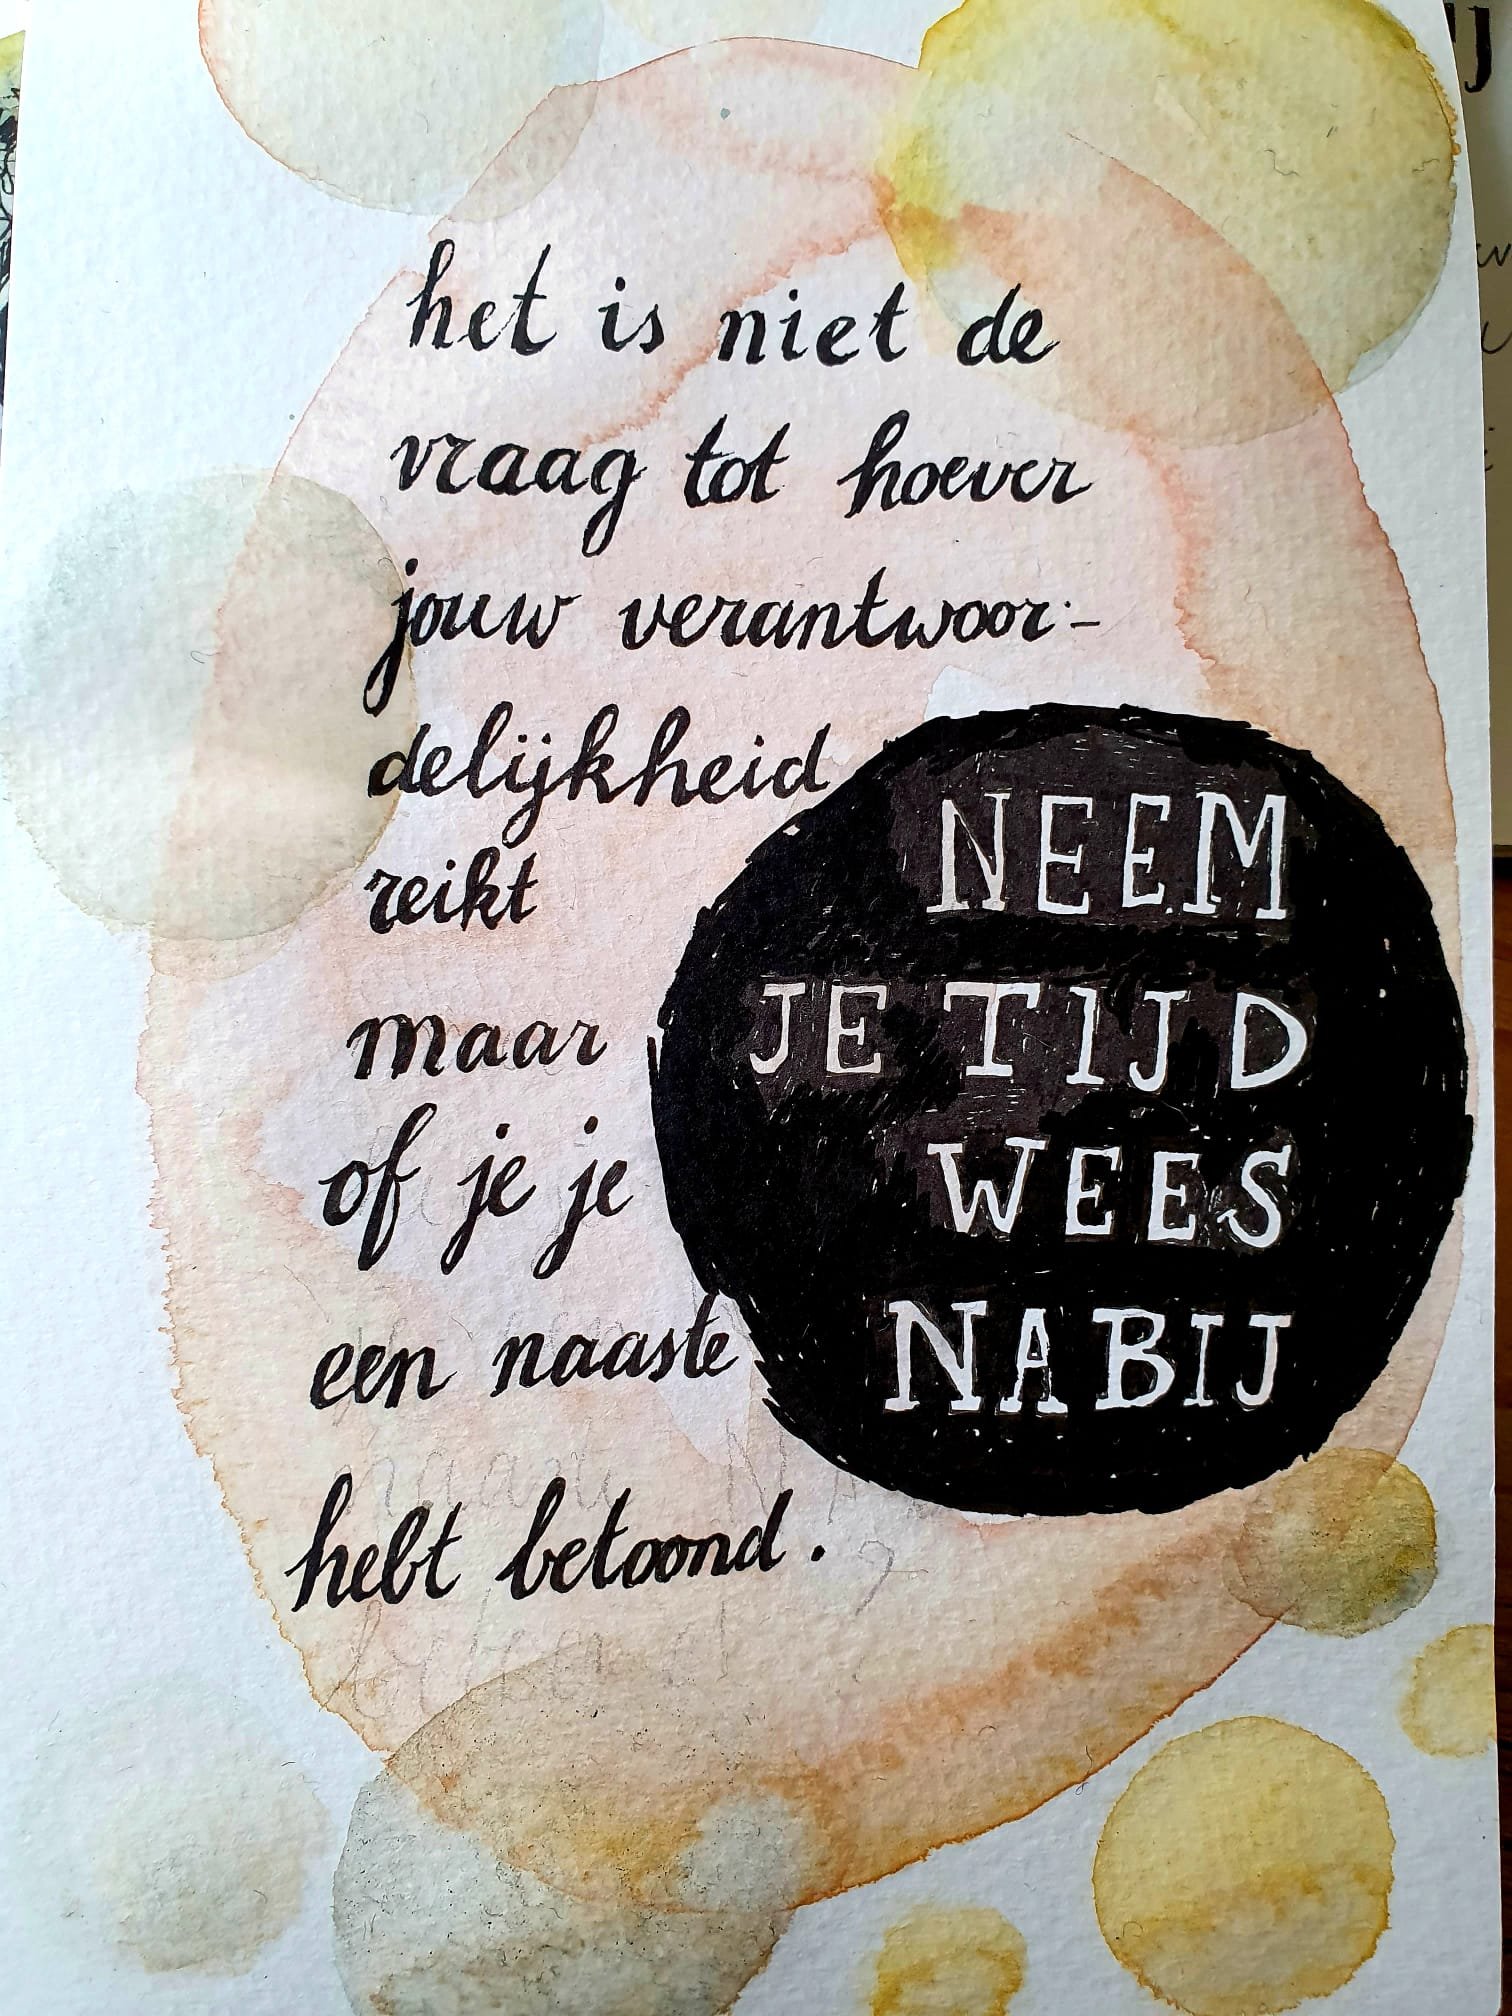 het is niet de
vraag tot hoever
jouw verantwoor-
delijkheid
reikt
maar
of je je
een naaste
hebt betoond.
NEEM
JE TIJD
WEES
NABIJ